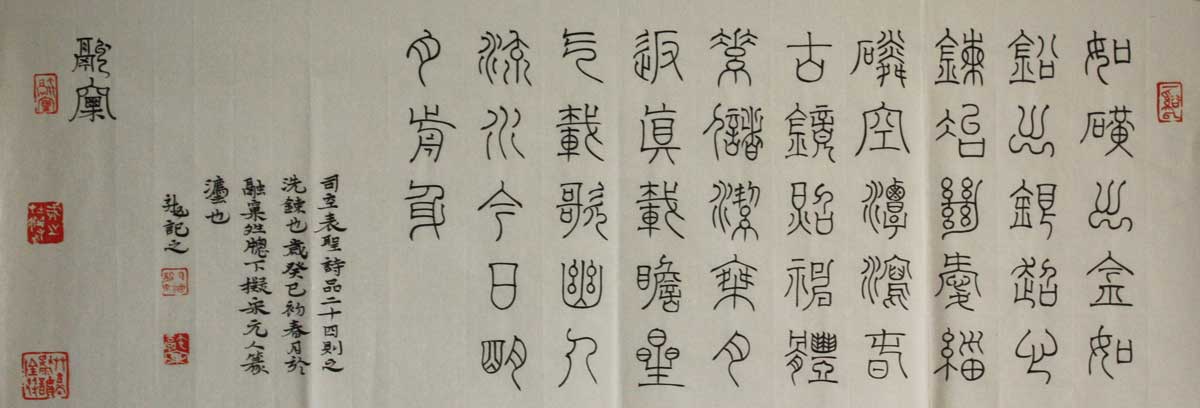 如礦出金如
鉛出銀超心
鍊冶絕愛緇
磷空潭瀉春
古鏡照神體
素儲潔乘月
返真載瞻星
气載歌幽人
流水今日明
月前身
司空表聖詩品二十四則之
洗鍊也歲癸巳初春月於
融牕下擬宋元人篆
灋也
記之